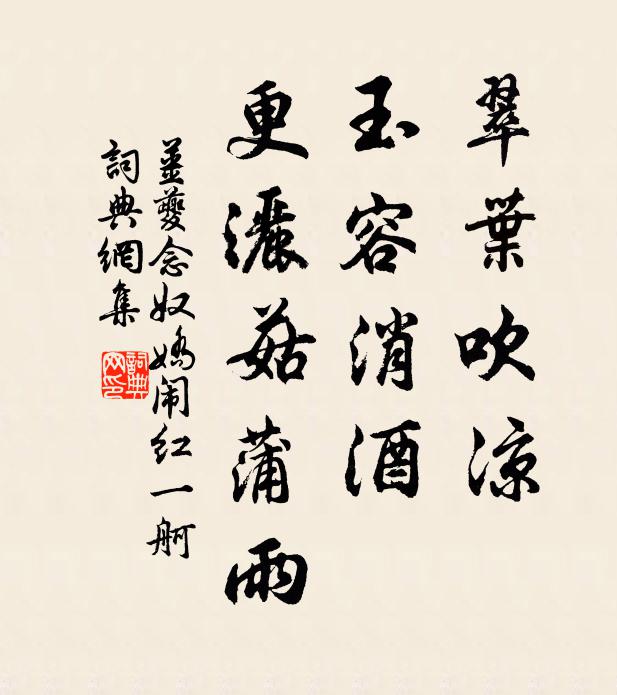 翠葉吹涼
玉容消酒
更灑菰蒲雨
姜夔念奴嬌闹红一舸
詞典網集
詞典网印